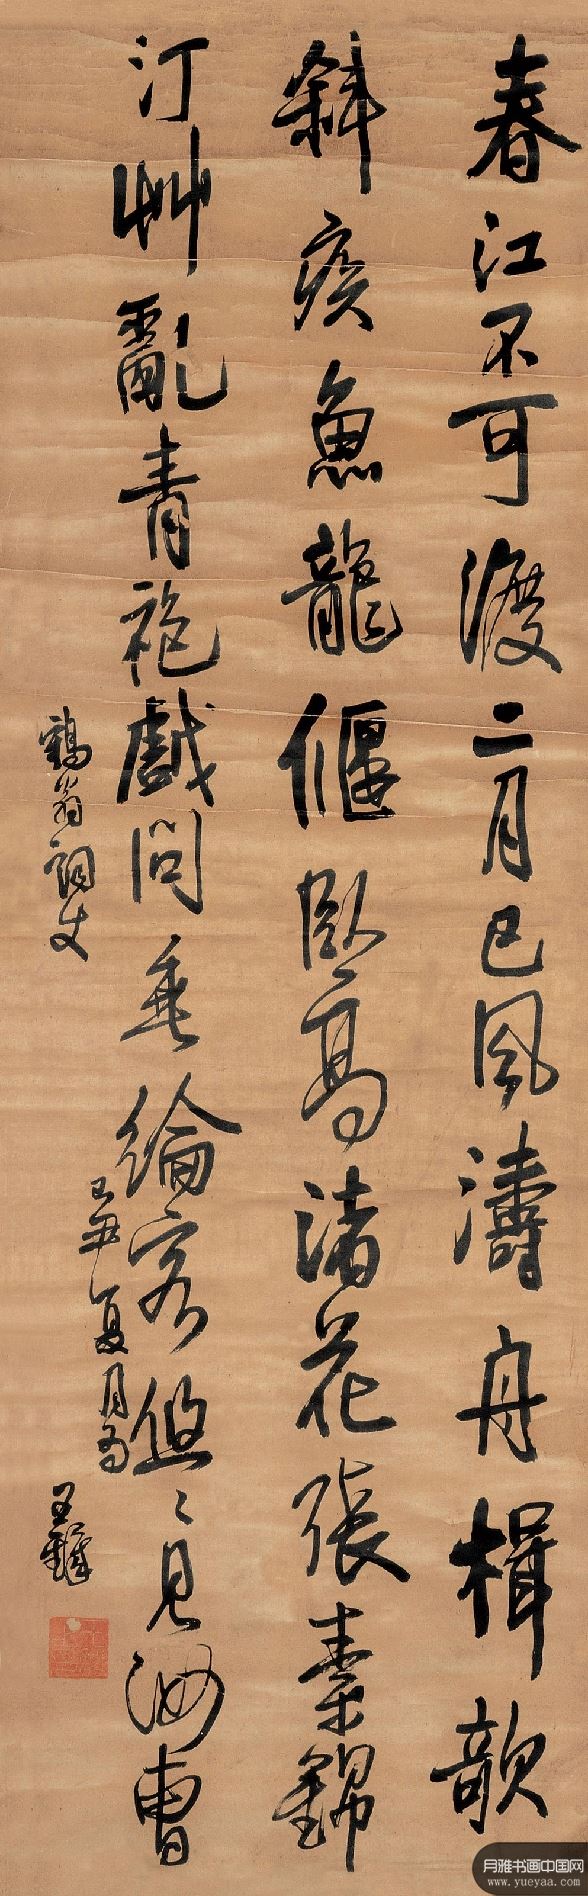 春江不可渡二月已風濤舟楫欹
斜疾魚龍偃卧高渚花張素錦
汀艸亂青袍戲問垂綸客悠〻見汝曹
己丑夏月為
鶴翁詞丈
王鐸
月雅书画中国网
www.yueyaa.com